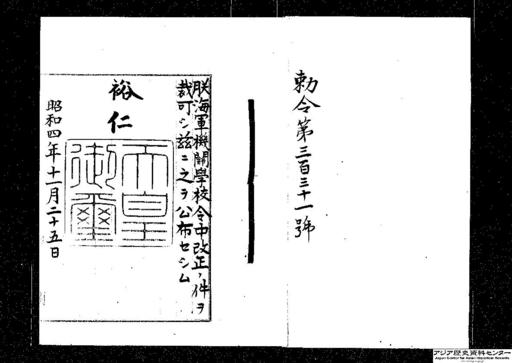 勅令第三百三十一號
朕海軍機關學校令中改正ノ件ヲ
裁可シ茲ニ之ヲ公布セシム
裕仁
天皇御璽
昭和四年十一月二十五日
アジア歴史資料センター
Japan Center for Asian Historical Records